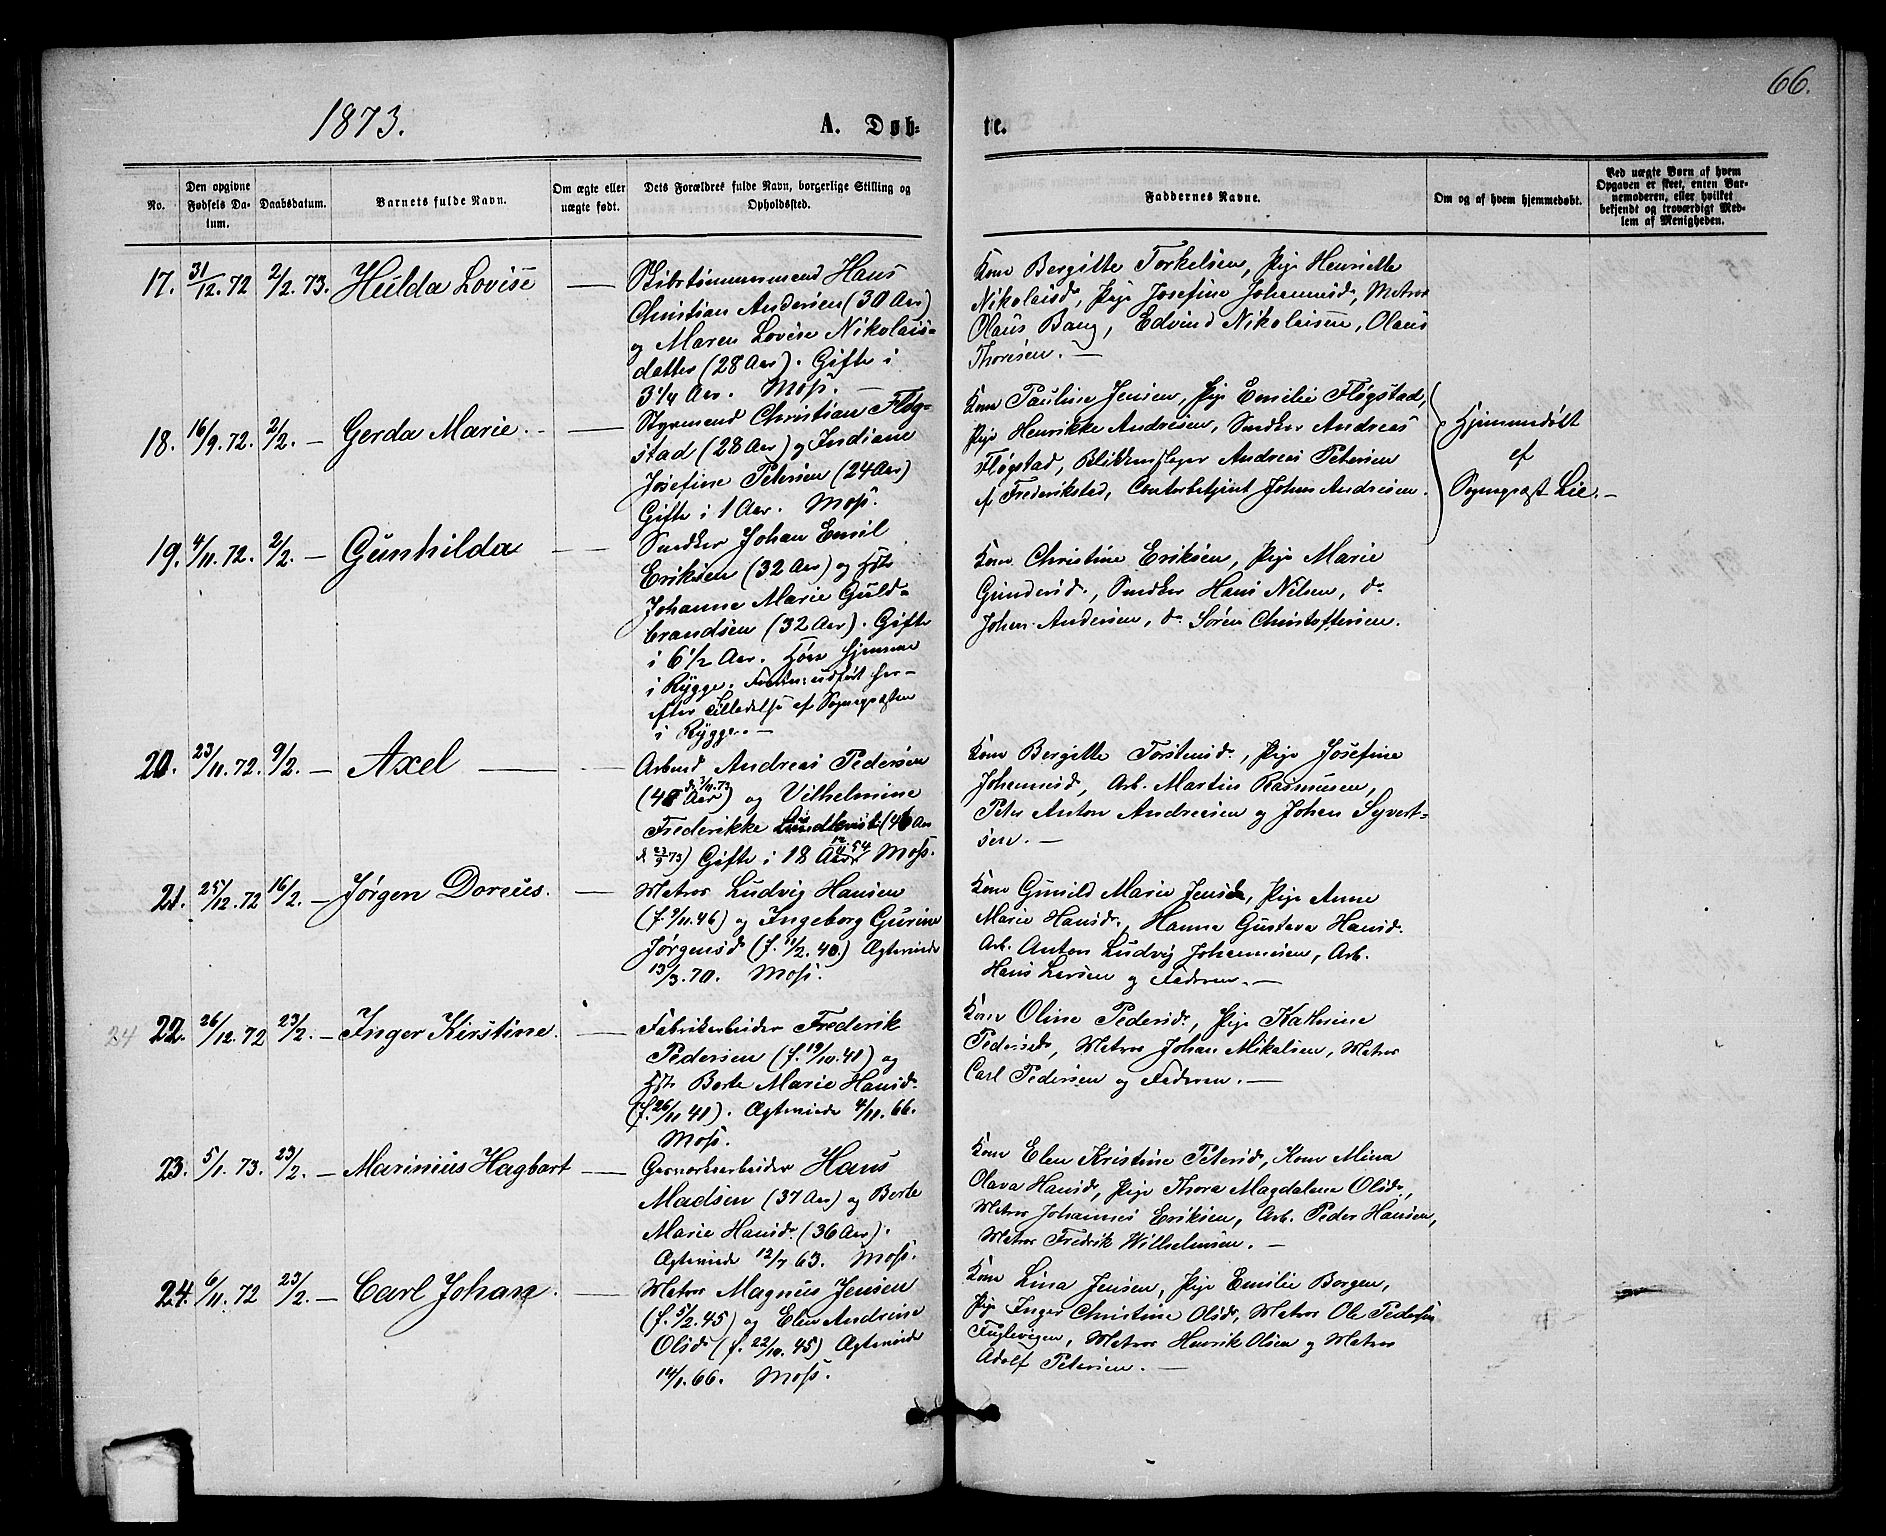 66.
1873.
A. Døb-
te.
No.
Den opgivne Fødsels Da-
tum.
Daabsdatum.
Barnets fulde Navn.
Om ægte eller
uægte født.
Dets Forældres fulde Navn, borgerlige Stilling og
Opholdssted.
Faddernes Navne.
Om og af hvem hjemmedøbt.
Ved uægte Børn af hvem
Opgaven er skeet, enten Bar-
nemoderen, eller hvilket
bekjendt og troværdigt Med-
lem af Menigheden.
17. 31/12.72 2/2.73. Hulda Lovise —
Skibstømmermand Hans
Christian Andersen (30 Aar)
og Maren Lovise Nikolais-
datter (28 Aar). Gifte i
3 1/4 Aar. Moss.
Kone Bergitte Torkelsen, Pige Henriette
Nikolaisd., Pige Josefine Johannesd., Matros
Olaus Bang, Edvind Nikolaisen, Olaus
Thoresen. —
18. 16/9.72. 2/2. — Gerda Marie. —
Styrmand Christian Fløg-
stad (28 Aar) og Indiane
Josefine Petersen (24 Aar)
Gifte i 1 Aar. Moss.
Kone Pauline Jensen, Pige Emilie Fløgstad,
Pige Henrikke Andresen, Snedker Andreas
Fløgstad, Blikkenslager Andreas Petersen
af Frederikstad, Contorbetjent Johan Andresen.
Hjemmedøbt
af
Sognepræst Lie. —
19. 4/11.72. 2/2. — Gunhilda —
Snedker Johan Emil
Eriksen (32 Aar) og Hst.
Johanne Marie Guld-
brandsen (32 Aar). Gifte
i 6 1/2 Aar. Hører hjemme
i Rygge. udført her
efter Tilladelse af Sognepræsten
i Rygge. —
Kone Christine Eriksen, Pige Marie
Gundersd., Snedker Hans Nilsen, do
Johan Andersen, do Søren Christoffersen.
20. 23/11.72. 9/2. — Axel —
Arbmd Andreas Pedersen
(48 Aar) og Vilhelmine
Frederikke Lundkvist (46 Aar
) Gifte i 18 Aar Moss.
Kone Bergitte Torstensd., Pige Josefine
Johannesd, Arb. Martin Rasmusen,
Peter Anton Andreesen og Johan Syvert-
sen. —
21. 25/12.72 16/2. — Jørgen Doreus. —
Matros Ludvig Hansen
(f. 9/11.46) og Ingeborg Gurine
Jørgensd (f. 11/2.40) Ægteviede
13/3.70. Moss.
Kone Gunild Marie Jensd., Pige Anne
Marie Hansd., Hanna Gustava Hansd.
Arb. Anton Ludvig Johannesen, Arb.
Hans Larsen og Faderen. —
24 22. 26/12.72 23/2. — Inger Kirstine. —
Fabrikarbeider Frederik
Pedersen (f. 19/10.41) og
Hst. Berte Marie Hansd.
(f. 26/11 41). Ægteviede 4/11.66.
Moss.
Kone Oline Pedersd., Pige Kathrine
Pedersd., Matros Johan Mikalsen, Matros
Carl Pedersen og Faderen. —
23. 5/1.73. 23/2. — Marinius Hagbart —
Gasværksarbeider Hans
Madsen (37 Aar) og Berte
Marie Hansd. (36 Aar).
Ægteviede 12/7 63. Moss.
Kone Elen Kristine Petersd., Kone Mina
Olava Hansd., Pige Thora Magdalene Olsd.,
Matros Johannes Eriksen, Arb. Peder Hansen,
Matros Fredrik Wilhelmsen. —
24. 6/11.72 23/2. — Carl Johan. —
Matros Magnus Jensen
(f. 5/2.45) og Elen Andrine
Olsd. (f. 22/10.45) Ægteviede
14/1.66. Moss.
Kone Lina Jensen, Pige Emilie Borgen,
Pige Inger Christine Olsd., Matros Ole Pedersen
Fuglevigen, Matros Henrik Olsen og Matros
Adolf Petersen. —